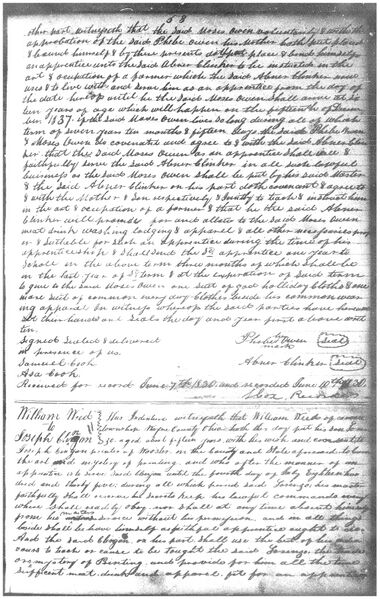 58
other part witnesseth that the said Moses Owen voluntarily & with the
approbation of the said Phebe Owen his Mother hath put placed
& bound himself & by these presents do put place & bind himself
an apprentice unto the said Abner Clinker to be instructed in the
art & occupation of a farmer which the said Abner Clinker now
uses & to live with and serve him as an apprentice from the day of
the date hereof until he the said Moses Owen shall arrive at
years of age which will happen on the
1837 if the said Moses Owen live so long during all of which
term of seven years ten months & fifteen days the said Phebe Owen
& Moses Owen do covenant and agree to & with the said Abner Clin
ker that the said Moses Owen as an apprentice shall well &
faithfully serve the said Abner Clinker in all such lawful
business as the said Moses Owen shall be put by his said Master
& the said Abner Clinker on his part doth covenant & agree to
& with the Mother & Son respectively & Firstly to teach & instruct him
in the art & occupation of a farmer & that he the said Abner
Clinker will provide for and allow to the said Moses Owen
meat drink washing lodging & apparel & all other necessaries proper
& suitable for such an apprentice during the time of his
apprenticeship & shall send the sd apprentice one year to
School in the above term three months of which shall be
in the last year of sd term & at the expiration of said term
to give to the said Moses Owen one suit of good holliday Clothes & one
more suit of common every day Clothes beside his common wear
ing apparel In witness whereof the said parties have hereunto
set their hands and Seals the day and year first above writ
ten.
Signed Sealed & delivered Phebe Owen Seal
in presence of us. mark
Samuel Cook Abner Clinker Seal
Asa Cook
Received for record June 7th 1830 and recorded June 10th 1830
Recorder
William Wird This Indenture witnesseth that William Wird of
to township Wayne County Ohio hath this day put his son
Joseph Clingan aged aged fifteen years with his wish and consent to
Joseph Clingan printer of Wooster in the county and State aforesaid to learn
the art and mystery of printing, and who after the manner of an
apprentice to serve said Clingan until the fourth day of July Eighteen hun
dred and thirty five; during all which period said Lorenzo, his master
faithfully shall serve his secrets keep his lawful commands every
where shall readily obey nor shall at any time absent himself
from his masters service without his permission, and in all things
beside shall behave himself as a faithful apprentice ought to do
And the said Clingan on his part shall use the best of his endea
vours to teach or cause to be taught the said Lorenzo the trade
or mystery of Printing and provide for him all the time
sufficient meat drink and apparel fit for an apprentice